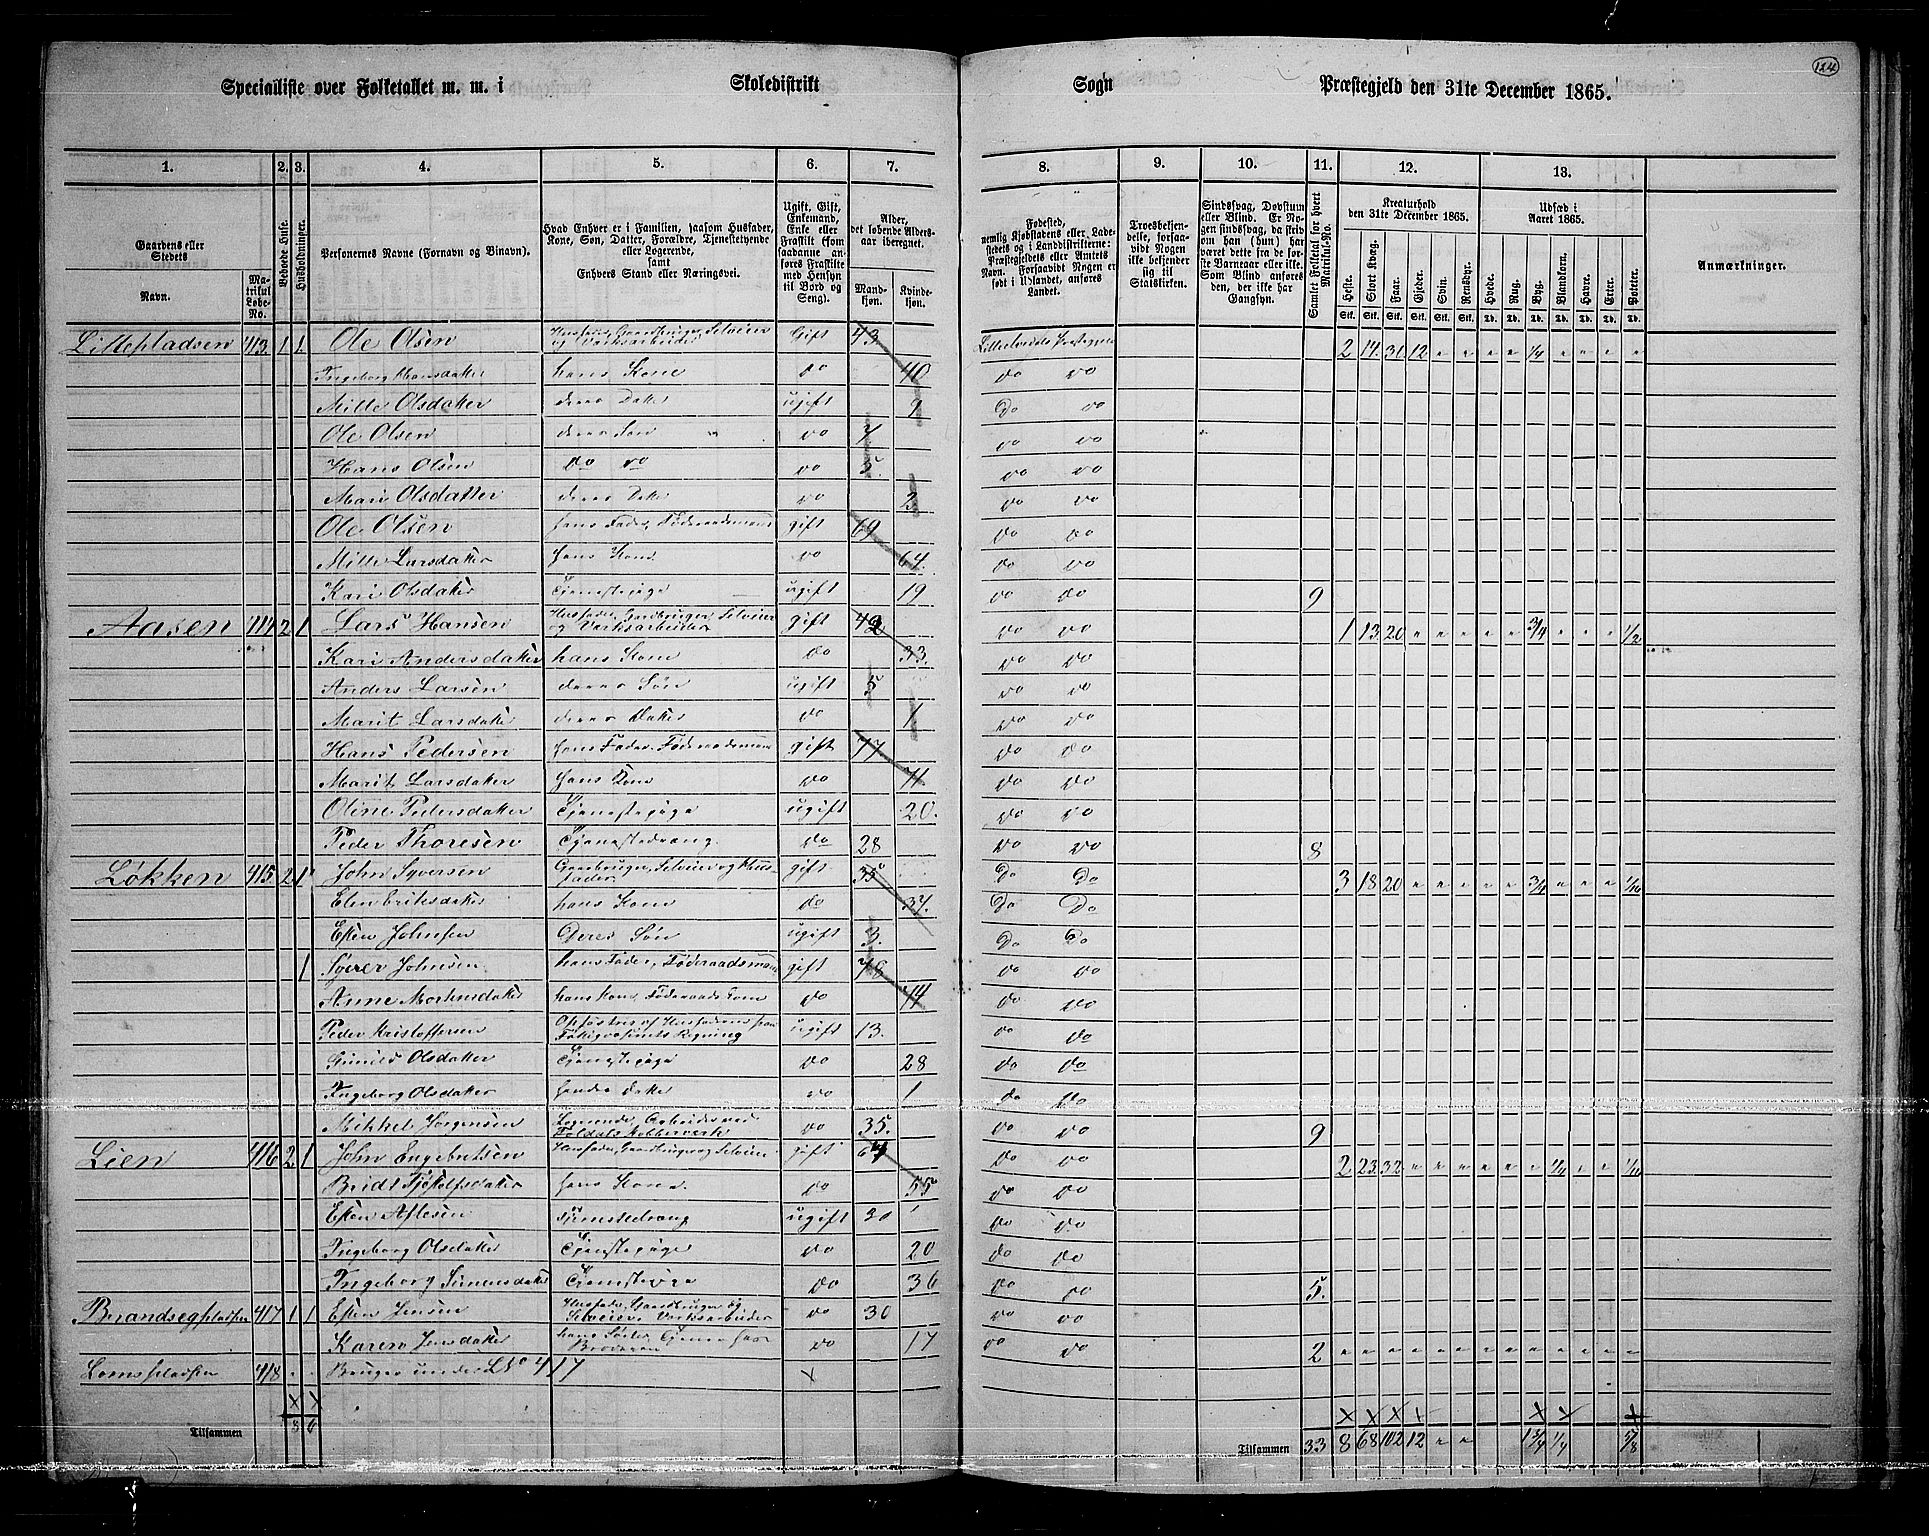 124
Specialliste over Folketallet m. m. i Skoledistrikt Sogn Præstegjeld den 31te December 1865.
1. 2. 3. 4. 5. 6. 7. 8. 9. 10. 11. 12. 13.
Gaardens eller Stedets Navn.
Matrikul Løbe-No.
Beboede Huse.
Husholdninger.
Personernes Navne (Fornavn og Binavn).
Hvad Enhver er i Familien, saasom Husfader, Kone, Søn, Datter, Forældre, Tjenestetyende eller Logerende, samt Enhvers Stand eller Næringsvei.
Ugift, Gift, Enkemand, Enke eller Fraskilt (som saadanne anføres Fraskilte med Hensyn til Bord og Seng).
Alder, det løbende Aldersaar iberegnet.
Mandkjøn. Kvindekjøn.
Fødested, nemlig Kjøbstadens eller Ladestedets og i Landdistrikterne: Præstegjeldets eller Amtets Navn. Forsaavidt Nogen er født i Udlandet, anføres Landet.
Troesbekjendelse, forsaavidt Nogen ikke bekjender sig til Statskirken.
Sindssvag, Døvstum eller Blind. Er Nogen sindssvag, da skrives om han (hun) har været dette fra de første Barneaar eller ikke. Som Blind anføres den, der ikke har Gangsyn.
Samlet Folketal for hvert Matrikul-No.
Kreaturhold den 31te December 1865.
Heste. Stort Kvæg. Faar. Gjeder. Svin. Rensdyr.
Stk. Stk. Stk. Stk. Stk. Stk.
Udsæd i Aaret 1865.
Hvede. Rug. Byg. Blandkorn. Havre. Erter. Poteter.
Td. Td. Td. Td. Td. Td. Td.
Anmærkninger.
Lillepladsen 413. 1 1. Ole Olsen Husfader, Gaardbruger, Selveier og Værksarbeider Gift 43 Lilleelvedals Præstegjeld 2 14. 30. 12 " " " " 1/4 " " " "
Ingeborg Hansdatter hans Kone do 40 do do
Mille Olsdatter deres Datter ugift 9 Do do
Ole Olsen deres Søn do 7 do do
Hans Olsen do do do 5. do do
Mari Olsdatter deres Datter do 3 do do
Ole Olsen hans Fader, Føderaadsmand gift 69 do do
Mille Larsdatter hans Kone do 64. do do
Kari Olsdatter Tjenestepige ugift 19 do do 9
Aasen 414 2 1 Lars Hansen Husfader, Gaardbruger, Selveier og Værksarbeider gift 42 do do 1 13. 20 " " " " " 3/4 " " " 1/2
Kari Andersdatter hans Kone do 33. do do
Anders Larsen deres Søn ugift 5 do do
Marit Larsdatter deres Datter do 1 do do
Hans Pedersen hans Fader, Føderaadsmand gift 77 do do
Marit Larsdatter hans Kone do 71 do do
Oline Pedersdatter Tjenestepige ugift 20. do do
Peder Thoresen Tjenestedreng do 28 do do 8
Løkken 415. 2 1 John Syversen Gaardbruger, Selveier og Husfader. gift 35 Do Do 3 18 20 " " " " " 3/4 " " " 1/16
Elen Eriksdatter hans Kone do 37. Do Do
Esten Johnsen Deres Søn ugift 3. Do Do
1 Syver Johnsen hans Fader, Føderaadsmand gift 78 do do
Anne Mortensdatter hans Kone, Føderaads Kone do 74 do do
Peder Kristoffersen Opfostres af Husfaderen paa Fattigvæsenets Regning ugift 13. do do
Gunild Olsdatter Tjenestepige do 28 do do
Ingeborg Olsdatter hendes Datter do 1 do do
Mikkel Jørgensen Logerende, Arbeider ved Foldals Kobberverk do 35. do do 9
Lien 416 2 1 John Engebretsen Husfader, Gaardbruger og Selveier gift 64 do do 2 23. 32 " " " " " " 1/4 " " 1/16
Bridt Tjøstelfsdatter hans Kone do 55 do do
Esten Atlesen Tjenestedreng ugift 30 do do
Ingeborg Olsdatter Tjenestepige do 20 do do
Ingeborg Simensdatter Tjenestepige do 36 do do 5.
Brandsegpladsen 417 1 1 Esten Jensen Husfader, Gaardbruger og Selveier, Værksarbeider do 30 do do
Karen Jensdatter hans Søster, Tjener hos Broderen do 17 do do 2 " " " " " " " " " " " " "
Lomspladsen 418 " " Bruges under LNo 417
Tilsammen 8 6
Tilsammen 33 8 68 102 12 " " 1 3/4 1/4 5/8